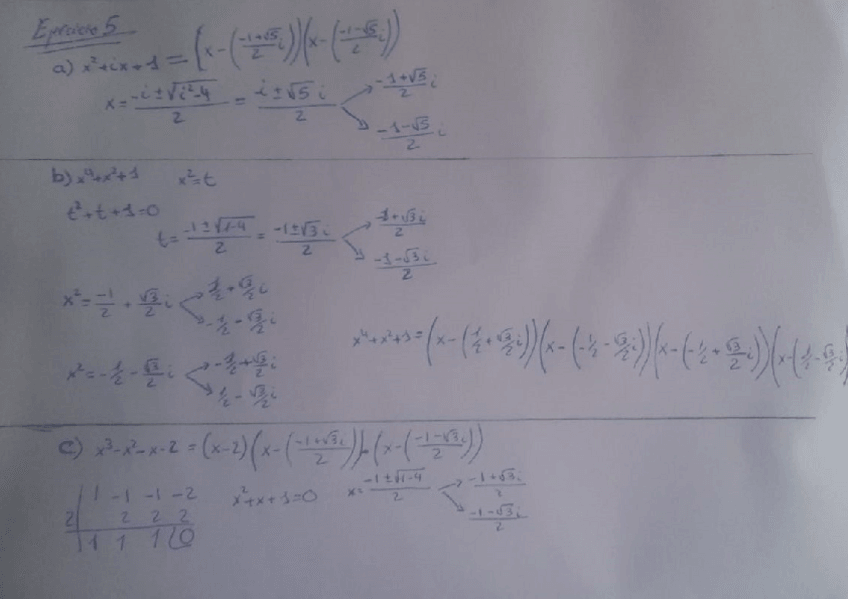 Ejercicio 5
a) x²+ix+1 = (x-(\frac{-1+√5}{2}i))(x-(\frac{-1-√5}{2}i))
x = \frac{-i±√(i²-4)}{2} = \frac{-i±√5 i}{2} → \frac{-1+√5}{2}i
→ \frac{-1-√5}{2}i
b) x⁴+x²+1 x²=t
t²+t+1=0
t = \frac{-1±√(1-4)}{2} = \frac{-1±√3 i}{2} → \frac{-1+√3 i}{2}
→ \frac{-1-√3 i}{2}
x² = \frac{-1}{2} + \frac{√3}{2}i → \frac{1}{2} + \frac{√3}{2}i
→ -\frac{1}{2} - \frac{√3}{2}i
x⁴+x²+1 = (x-(\frac{1}{2}+\frac{√3}{2}i))(x-(-\frac{1}{2}-\frac{√3}{2}i))(x-(-\frac{1}{2}+\frac{√3}{2}i))(x-(\frac{1}{2}-\frac{√3}{2}i)
x² = -\frac{1}{2} - \frac{√3}{2}i → -\frac{1}{2} + \frac{√3}{2}i
→ \frac{1}{2} - \frac{√3}{2}i
c) x³-x²-x-2 = (x-2)(x-(\frac{-1+√3 i}{2}))·(x-(\frac{-1-√3 i}{2}))
1 -1 -1 -2
2 2 2 2
1 1 1 0
x²+x+1=0 x = \frac{-1±√(1-4)}{2} → \frac{-1+√3 i}{2}
→ \frac{-1-√3 i}{2}